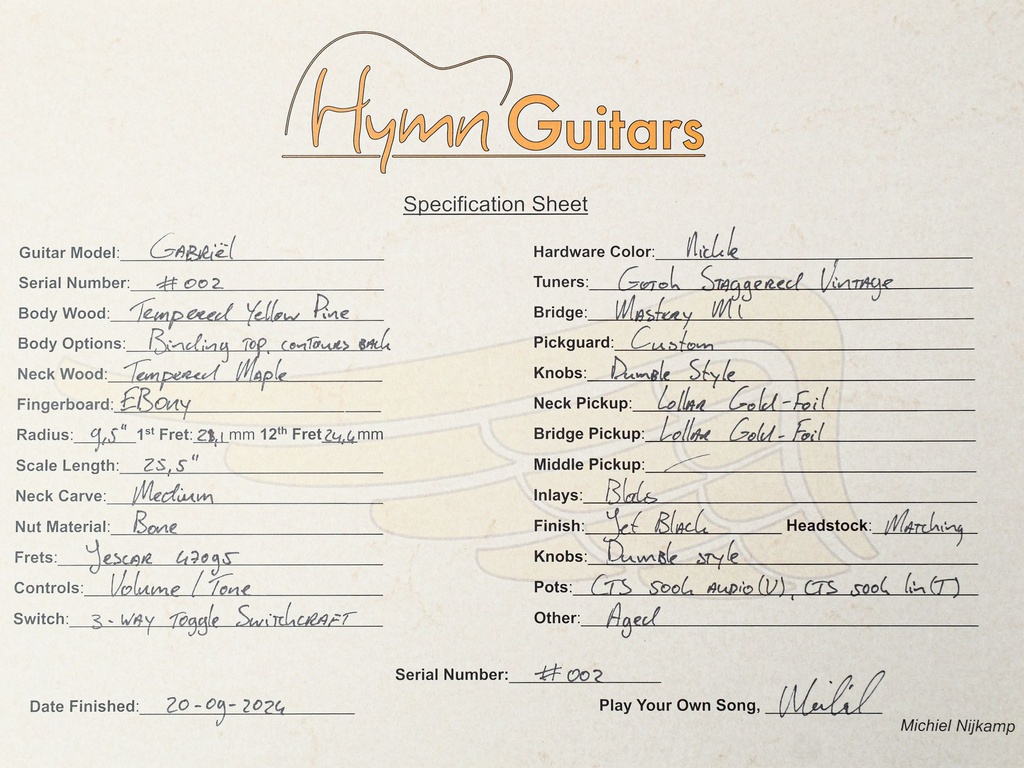 Hymn Guitars
Specification Sheet
Guitar Model: GABRiël
Serial Number: #002
Body Wood: Tempered Yellow Pine
Body Options: Binding TOP, contours BACK
Neck Wood: Tempered Maple
Fingerboard: EBony
Radius: 9,5" 1st Fret: 21,1 mm 12th Fret 24,6 mm
Scale Length: 25,5"
Neck Carve: Medium
Nut Material: Bone
Frets: Jescar 47095
Controls: Volume / Tone
Switch: 3-WAY Toggle SwitchCRAFT
Hardware Color: Nickle
Tuners: Gotoh Staggered Vintage
Bridge: Mastery M1
Pickguard: Custom
Knobs: Dumble Style
Neck Pickup: Lollar Gold-Foil
Bridge Pickup: Lollar Gold-Foil
Middle Pickup:
Inlays: Bloks
Finish: Jet Black Headstock: Matching
Knobs: Dumble style
Pots: CTS 500k AUDIO (V), CTS 500k lin (T)
Other: Aged
Serial Number: #002
Date Finished: 20-09-2024
Play Your Own Song,
Michiel Nijkamp